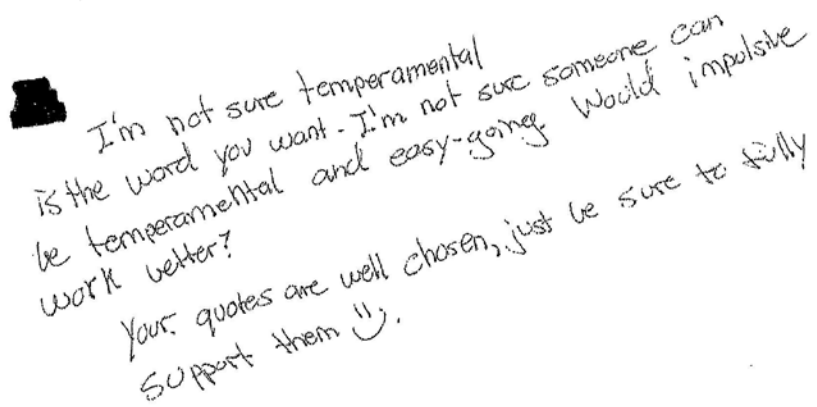 I'm not sure temperamental
is the word you want. I'm not sure someone can
be temperamental and easy-going. Would impulsive
work better?
Your quotes are well chosen, just be sure to fully
support them :).